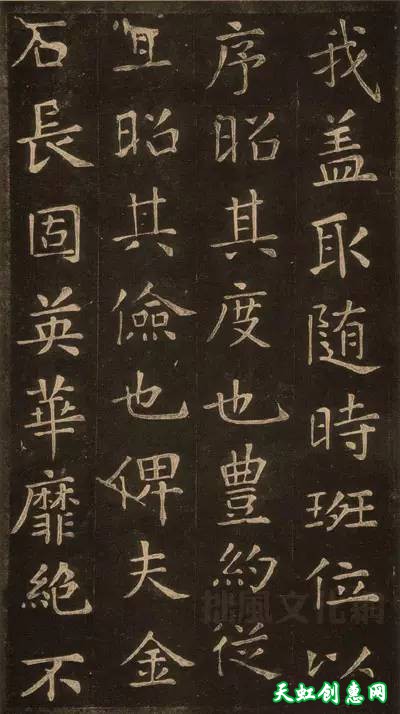 我盖取随時班位以
序昭其度也豊約從
宜昭其儉也俾夫金
石長固英華靡絶不
拙風文化網
天虹创惠网